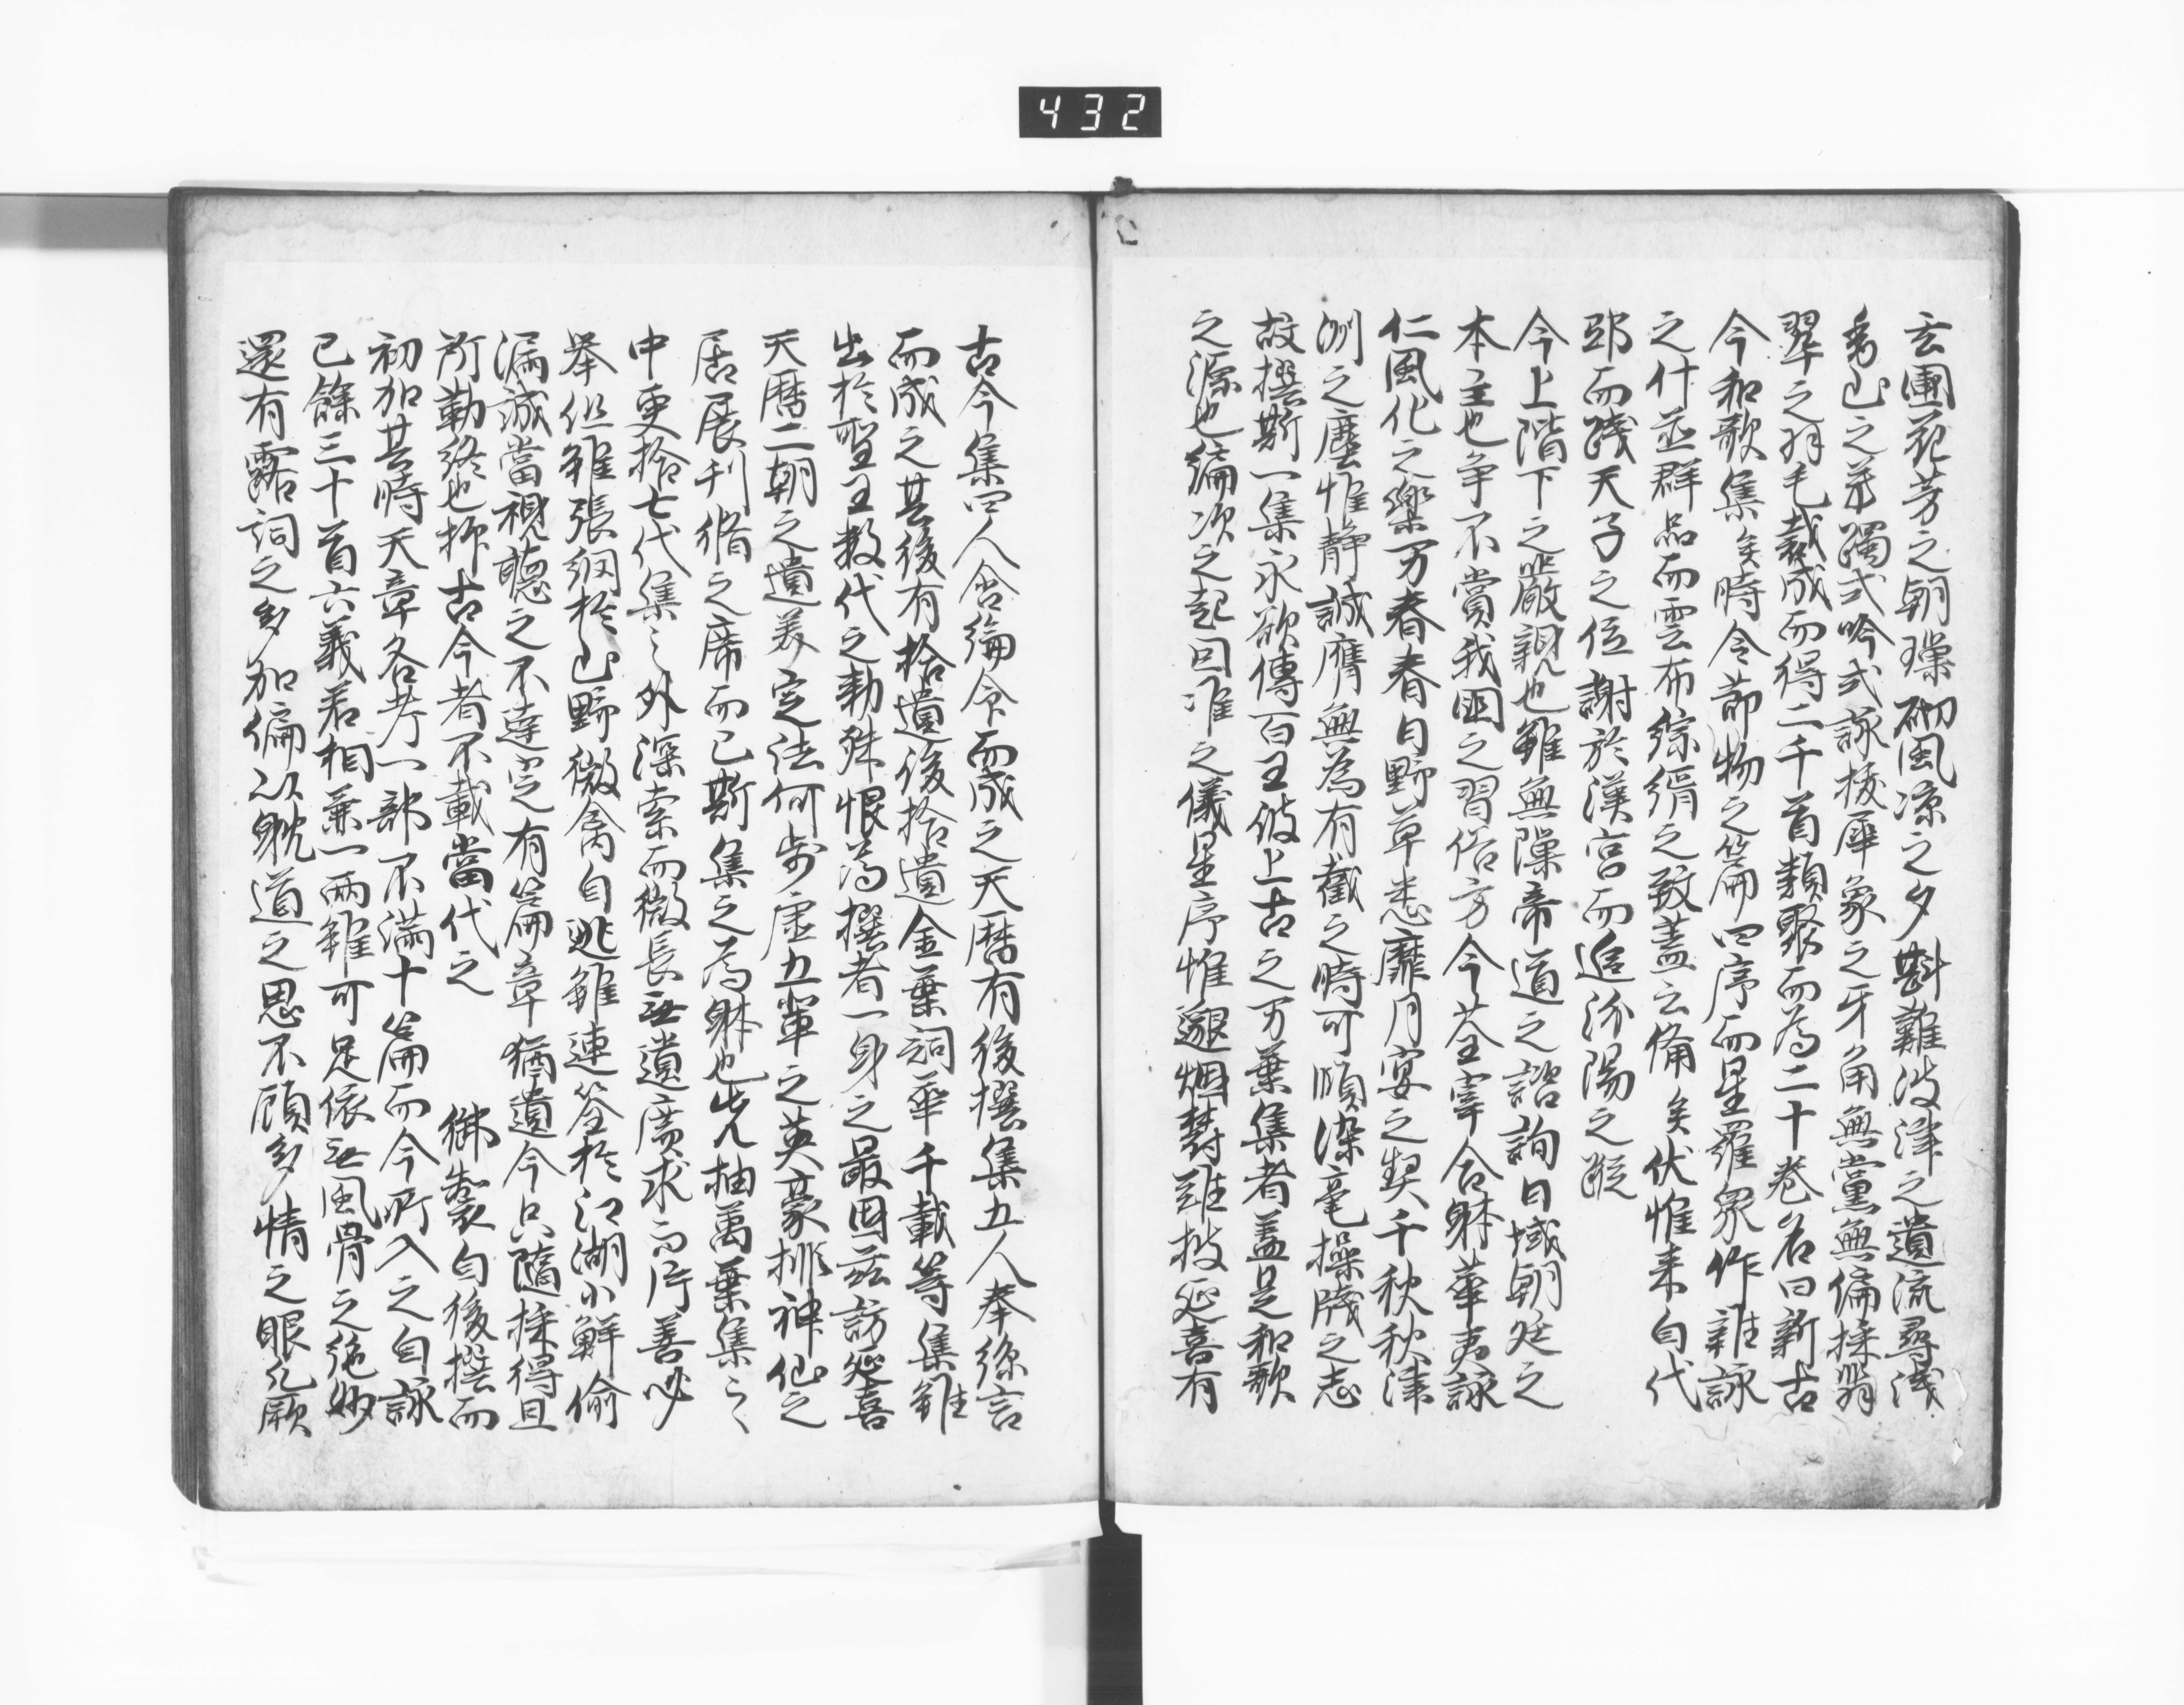 432
玄圃花芳之朝璅砌風涼之夕斟難波津之遺流尋浅
香山之芳躅或吟或詠抜犀象之牙角無黨無偏採翡
翠之羽毛裁成而得二千首類聚而為二十巻名曰新古
今和歌集矣時令節物之篇四序而星羅衆作雑詠
之什並群品而雲布綜緝之致蓋云備矣伏惟来自代
邸而踐天子之位謝於漢宮而追汾陽之蹤
今上陛下之嚴親也雖無隙帝道之諮詢日域朝廷之
本主也争不賞我國之習俗方今荃宰合躰華夷詠
仁風化之樂万春春日野草悉靡月宴之契千秋秋津
洲之塵惟静誠膺無為有截之時可頤染毫操牋之志
故撰斯一集永欲傳百王彼上古之万葉集者蓋是和歌
之源也編次之起因准之儀星序惟邈烟鬱難披延喜有
古今集四人含綸命而成之天暦有後撰集五人奉絲言
而成之其後有拾遺後拾遺金葉詞華千載等集雖
出於聖王數代之勅殊恨為撰者一身之最因茲訪延喜
天暦二朝之遺美定法何歩虚五輩之英豪排神仙之
居展刊脩之席而已斯集之為躰也先抽萬葉集之
中更拾七代集之外深索而微長無遺廣求而片善必
舉但雖張網於山野微禽自逃雖連筌於江湖小鮮偷
漏誠當視聴之不達定有篇章猶遺今只随採得且
所勒終也抑古今者不載當代之　御製自後撰而
初加其時天章各考一部不満十篇而今所入之自詠
已餘三十首六義若相兼一両雖可足依無風骨之絶妙
還有露詞之多加偏以躭道之思不顧多情之眼凡厥